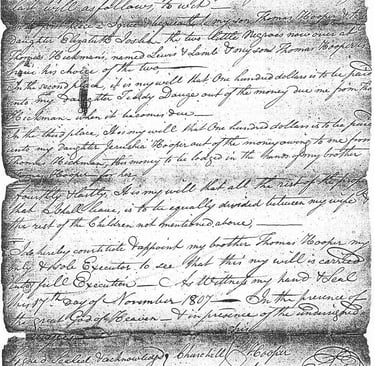 as follows, to wit —
I give & bequeath to my son Thomas Hooper &
Daughter Elizabeth the two little Negroes now over at
Thomas Heckmans, named Lewis & Lamb & my son Thomas Hooper
have his choice of the two —
In the second place, it is my will that One hundred dollars is to be paid
unto my Daughter Teddy out of the money due me from Tho
Heckman when it becomes due —
In the third place, It is my will that One hundred dollars is to be paid
unto my Daughter Jerusha Hooper out of the money owing to me from
Thomas Heckman, this money to be lodged in the hands of my brother
Hooper for her.
Fourthly & lastly, It is my will that all the rest of the
that I shall leave, is to be equally divided between my wife &
the rest of the Children not mentioned above —
I do hereby constitute & appoint my brother Thomas Hooper my
& sole Executor to see that this my will is carried
into full Execution — As Witness my hand & Seal
this 17th day of November 1807 — In the presence of
Great God of Heaven — & in presence of the undersigned
Sealed & acknowledgd Churchell Hooper